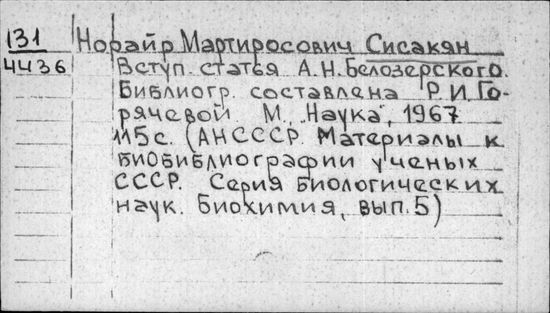 131 Норайр Мартиросович Сисакян
4436 Вступ. статья А.Н. Белозерского.
Библиогр. составлена Р.И. Го-
рячевой. М., Наука, 1967
115с. (АН СССР. Материалы к
биобиблиографии ученых
СССР. Серия биологических
наук. Биохимия, вып. 5)